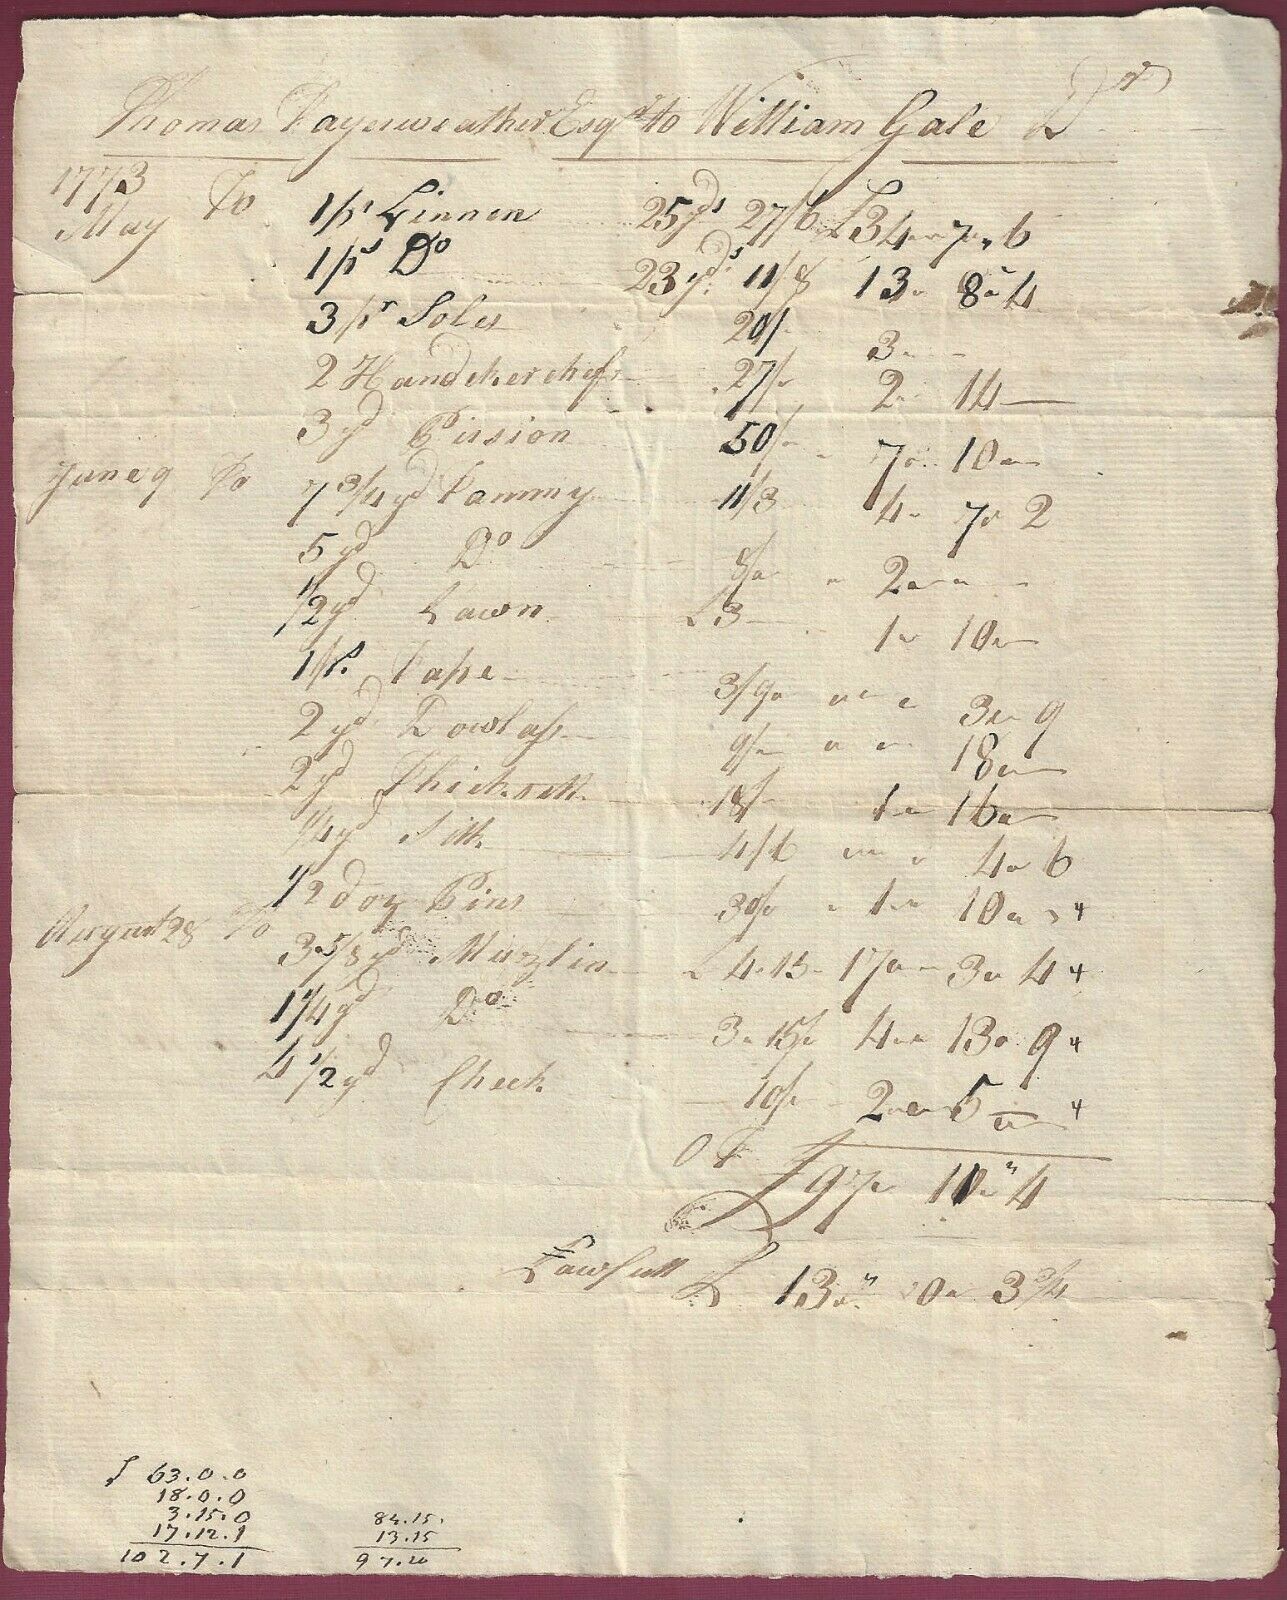 Thomas Fayerweather Esqr to William Gale Dr
1773
May To 1/ps Linnen 25yds 27/6 £34 " 7 " 6
1/ps Do 23yds 11/8 13 " 8 " 4
3/pr Soles 20/ 3 " -
2 Handcherchifs 27/ 2 " 14 —
3 yd Pirsion 50/ 7 " 10 "
June 9 To 7 3/4 yd Tammy 11/3 4 " 7 " 2
5 yd Do 8/ " 2 " "
1/2 yd Lawn £3 1 " 10 "
1/ps. Tape 3/9 " " 3 " 9
2 yd Dowlass 9/ " " 18 "
2 yd Thicksett 18/ 1 " 16 "
1/4 yd Silk 4/6 " " 4 " 6
1/2 doz Pins 30/ " 1 " 10 "
August 28 To 3 5/8 yd Muzlin £4 " 15 " 17 " 3 " 4
1 1/4 yd Do 3 " 15/ 4 " 13 " 9
4 1/2 yd Check 10/ 2 " 5 "
O T £97 " 11 " 4
Lawfull £ 13 " 0 " 3 3/4
63.0.0
18.0.0
3.15.0
17.12.1
102.7.1
84.15.
13.15
97.20